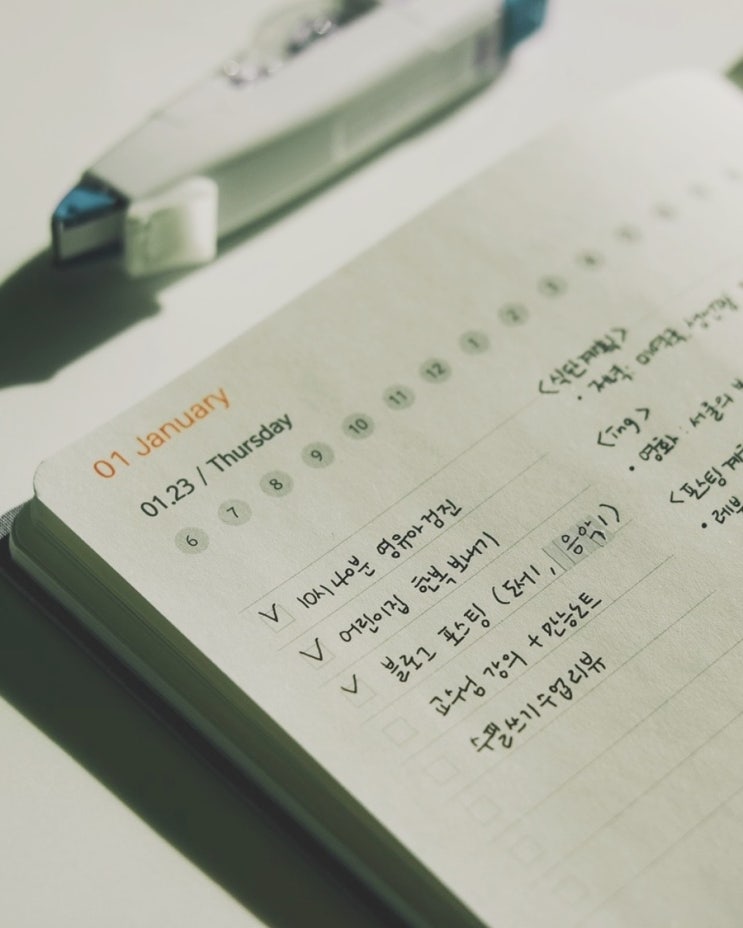 01 January
01.23 / Thursday
6 7 8 9 10 11 12 1 2 3 4
✓ 10시 40분 영유아검진
✓ 어린이집 한복 보내기
✓ 블로그 포스팅 (도서1, 음악1)
교수님 강의 + 만능노트
수필쓰기 수업 리뷰
<식단계획>
• 저녁: 미역국,
<ing>
• 영화: 서울의 봄
<포스팅 계획>